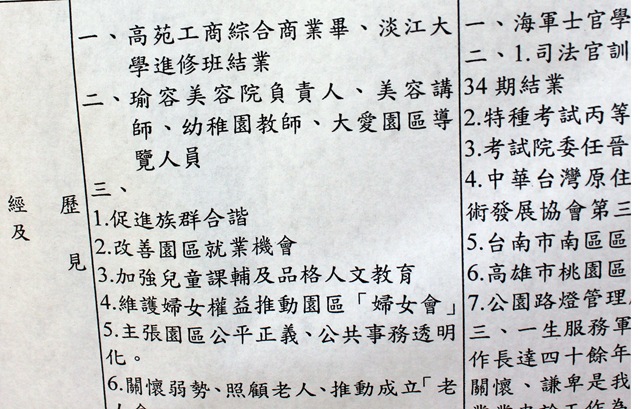 經歷
及見
一、高苑工商綜合商業畢、淡江大
學進修班結業
二、瑜容美容院負責人、美容講
師、幼稚園教師、大愛園區導
覽人員
三、
1.促進族群合諧
2.改善園區就業機會
3.加強兒童課輔及品格人文教育
4.維護婦女權益推動園區「婦女會」
5.主張園區公平正義、公共事務透明
化。
6.關懷弱勢、照顧老人、推動成立「老
一、海軍士官學
二、1.司法官訓
34期結業
2.特種考試丙等
3.考試院委任晉
4.中華台灣原住
術發展協會第三
5.台南市南區區
6.高雄市桃園區
7.公園路燈管理
三、一生服務軍
作長達四十餘年
關懷、謙卑是我